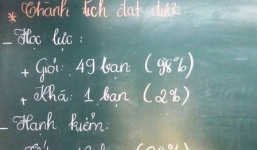 * Thành tích đạt được:
- Học lực:
+ Giỏi: 49 bạn (98%)
+ Khá: 1 bạn (2%)
- Hạnh kiểm: